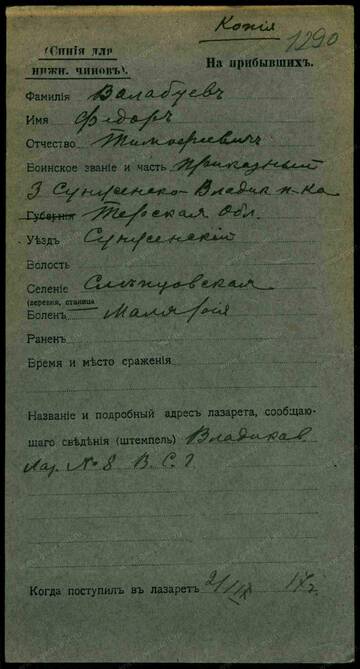 Копія
1290
(Синія для
нижн. чиновъ).
На прибывшихъ.
Фамилія Валабуевъ
Имя Федоръ
Отчество Тимофеевичъ
Воинское званіе и часть приказный
3 Сунженско-Владик п-ка
Губернія Терская Обл.
Уѣздъ Сунженскій
Волость
Селеніе Слѣпцовская
(деревня, станица
Боленъ Малярія
Раненъ
Время и мѣсто сраженія
Названіе и подробный адресъ лазарета, сообщаю-
щаго свѣдѣнія (штемпель) Владикав.
Лаз. № 8 В. С. Г.
Когда поступилъ въ лазаретъ 2/IX 17 г.